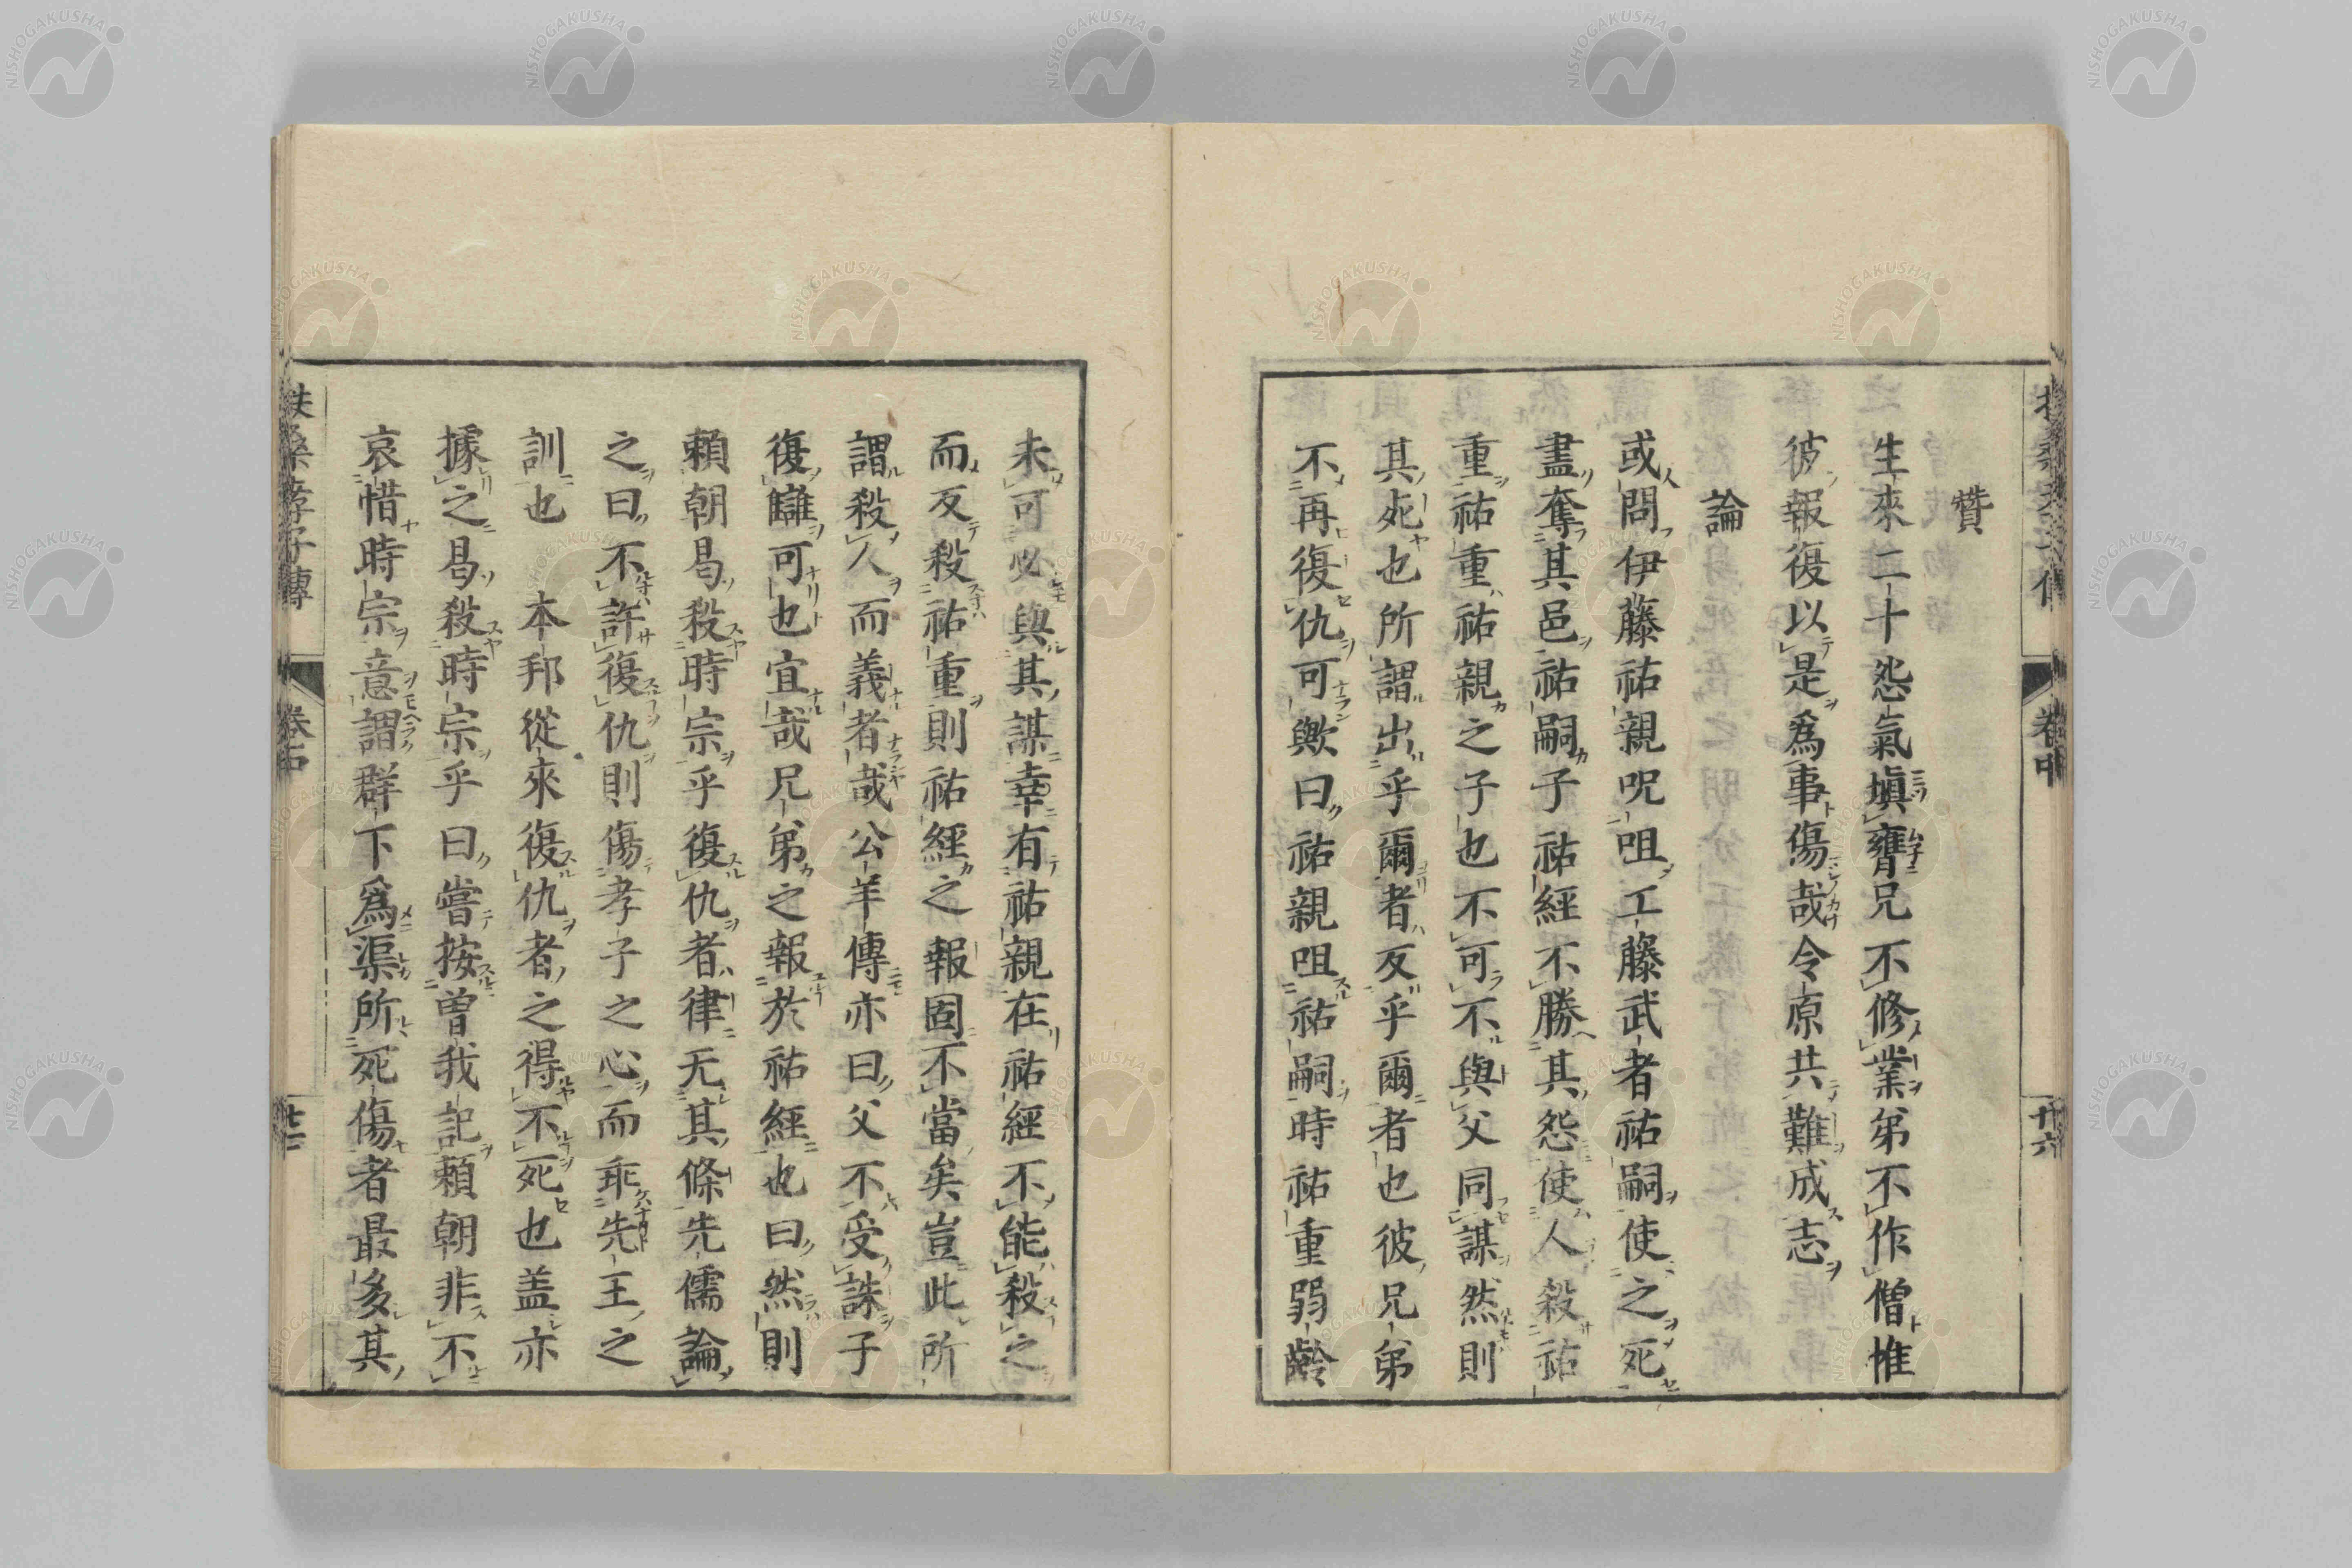 賛
生來二十怨氣塡膺兄不修業弟不作僧惟
彼報復以是爲事傷哉令原共難成志
論
或問伊藤祐親呪咀工藤武者祐嗣使之死
盡奪其邑祐嗣子祐經不勝其怨使人殺祐
重祐重祐親之子也不可不與父同謀然則
其死也所謂出乎爾者反乎爾者也彼兄弟
不再復仇可歟曰祐親咀祐嗣時祐重弱齡
未可必與其謀幸有祐親在祐經不能殺之
而反殺祐重則祐經之報固不當矣豈此所
謂殺人而義者哉公羊傳亦曰父不受誅子
復讎可也宜哉兄弟之報於祐經也曰然則
賴朝曷殺時宗乎復仇者律无其條先儒論
之曰不許復仇則傷孝子之心而乖先王之
訓也本邦從來復仇者之得不死也盖亦
據之曷殺時宗乎曰嘗按曽我記賴朝非不
哀惜時宗意謂群下爲渠所死傷者最多其
扶桑孝子傳
卷中
廿六
NISHOGAKUSHA